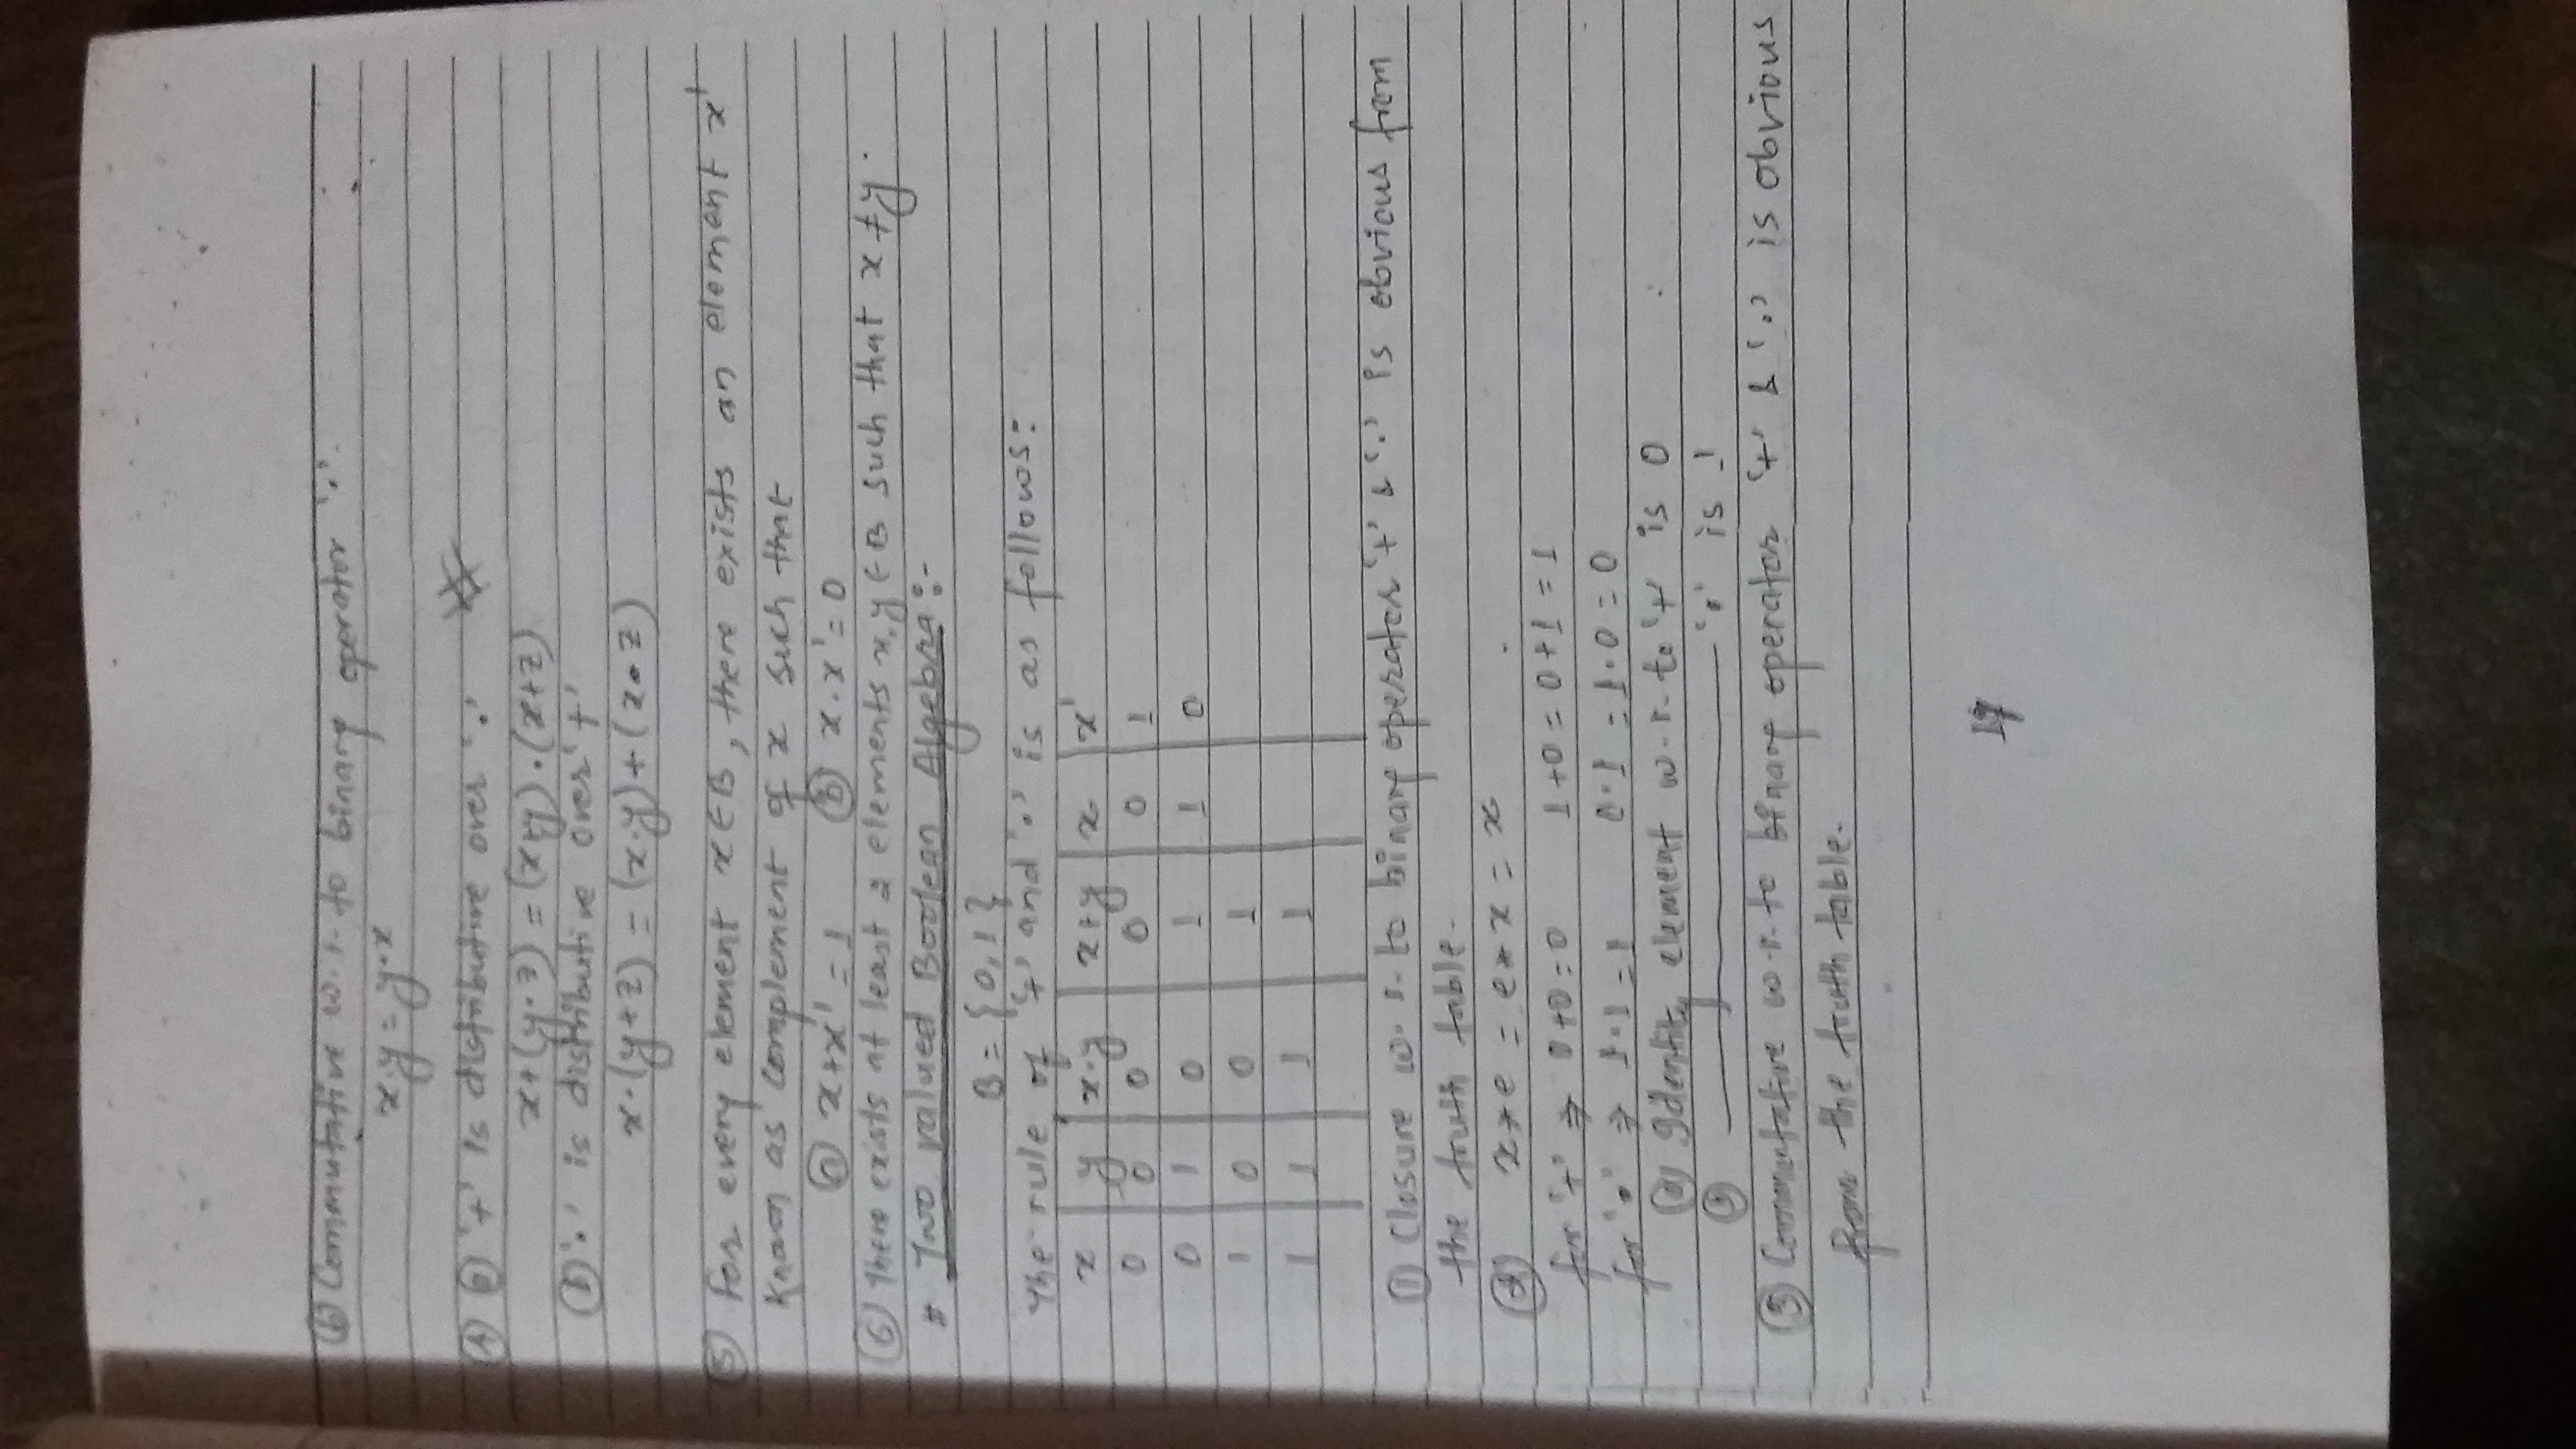 ⓑ Commutative w.r. to binary operator '.'
x.y = y.x
④ ⓐ '+' is distributive over '.'
x+(y.z) = (x+y).(x+z)
ⓑ '.' is distributive over '+'
x.(y+z) = (x.y)+(x.z)
⑤ For every element x∈B, there exists an element x'
Known as complement of x such that
ⓐ x+x' = 1 ⓑ x.x' = 0
⑥ There exists at least 2 elements x,y ∈ B such that x≠y.
# Two valued Boolean Algebra:-
B = {0,1}
The rule of '+' and '.' is as follows:
x y x.y x+y x x'
0 0 0 0 0 1
0 1 0 1 1 0
1 0 0 1
1 1 1 1
① Closure w.r. to binary operator '+' & '.' is obvious from
the truth table.
② x*e = e*x = x
for '+' ⇒ 0+0=0 1+0 = 0+1 = 1
for '.' ⇒ 1.1 = 1 0.1 = 1.0 = 0
ⓐ Identity element w.r. to '+' is 0
ⓑ ———————— '.' is 1
③ Commutative w.r. to binary operator '+' & '.' is obvious
from the truth table.